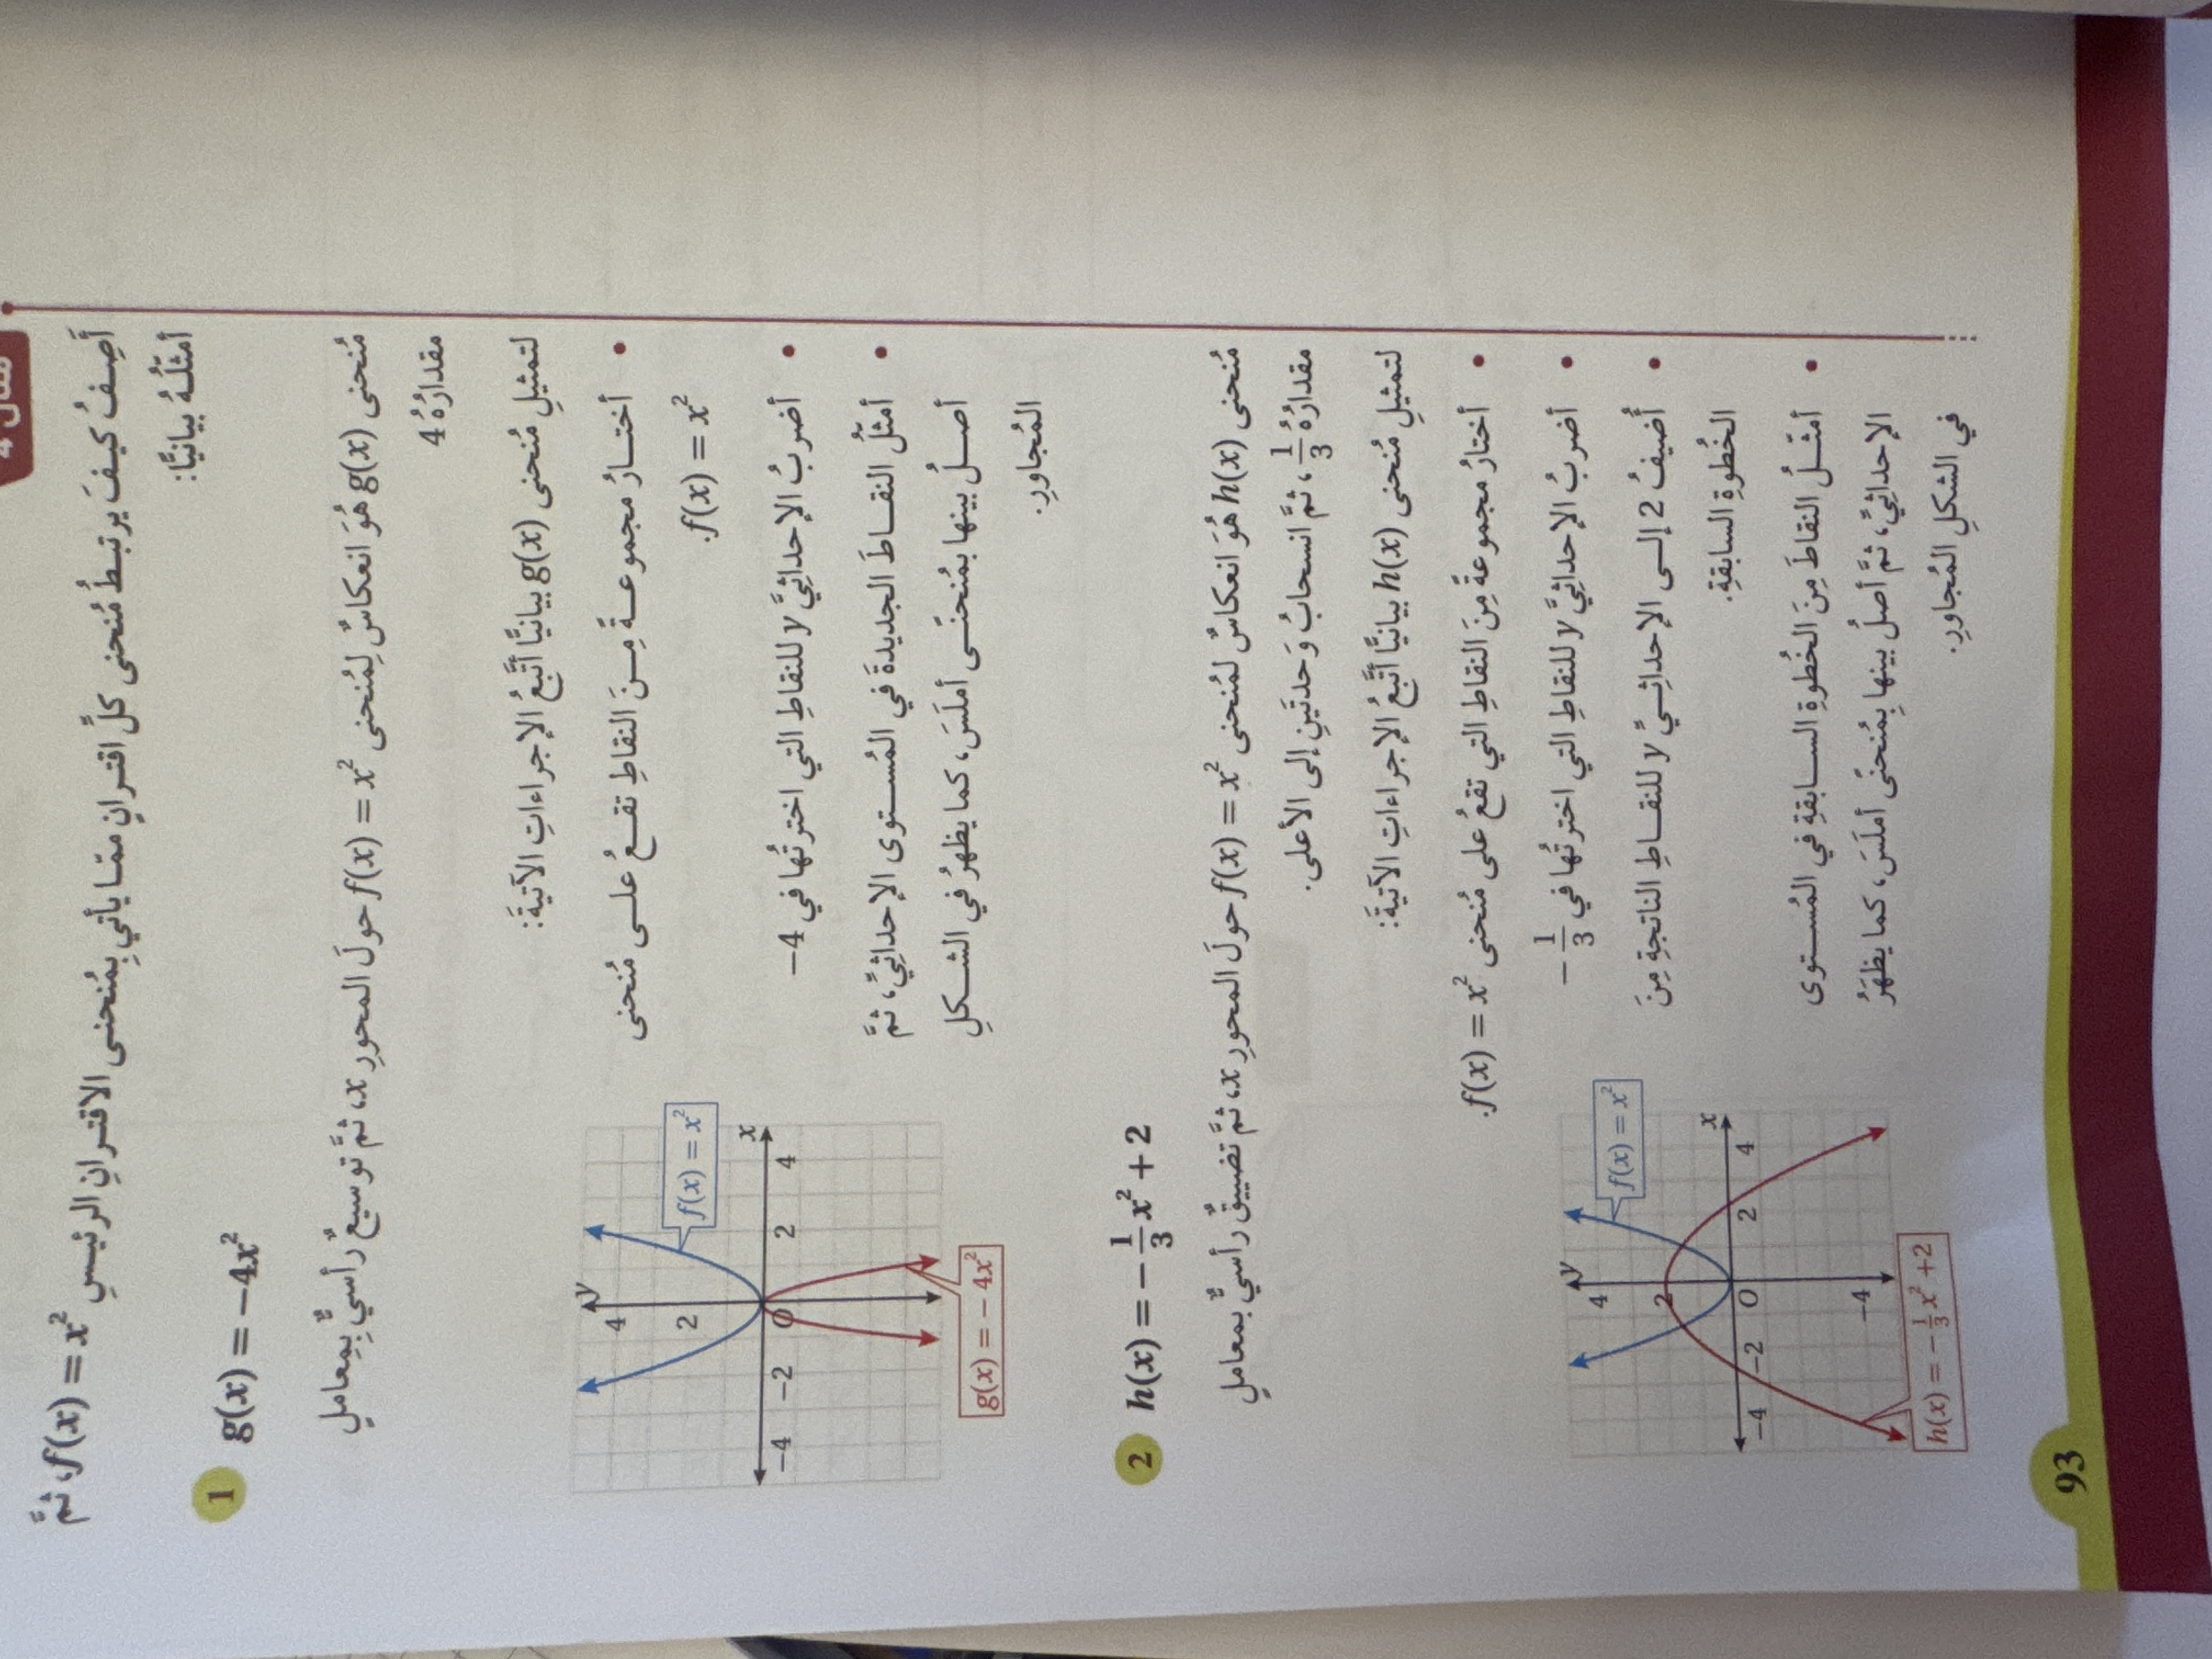 مثال 4
أَصِفُ كيفَ يرتبطُ مُنحنى كلِّ اقترانٍ ممّا يأتي بِمُنحنى الاقترانِ الرئيسِ f(x) = x²، ثمَّ
أُمثّلُهُ بيانيًّا:
1 g(x) = −4x²
مُنحنى g(x) هُوَ انعكاسٌ لِمُنحنى f(x) = x² حولَ المحورِ x، ثمَّ توسيعٌ رأسيٌّ بِمعاملِ
مقدارُهُ 4
لتمثيلِ مُنحنى g(x) بيانيًّا أتَّبعُ الإجراءاتِ الآتيةَ:
• أختارُ مجموعةً مِنَ النقاطِ تقعُ على مُنحنى
f(x) = x².
• أضربُ الإحداثيَّ y للنقاطِ التي اخترتُها في −4
• أُمثّلُ النقاطَ الجديدةَ في المُستوى الإحداثيِّ، ثمَّ
أصلُ بينها بمُنحنًى أملَسَ، كما يظهرُ في الشكلِ
المُجاورِ.
y
4
2
O
x
−4
−2
2
4
f(x) = x²
g(x) = −4x²
2 h(x) = −1/3 x² + 2
مُنحنى h(x) هُوَ انعكاسٌ لمُنحنى f(x) = x² حولَ المحورِ x، ثمَّ تضييقٌ رأسيٌّ بمعاملِ
مقدارُهُ 1/3، ثمَّ انسحابُ وَحدتَينِ إلى الأعلى.
لتمثيلِ مُنحنى h(x) بيانيًّا أتَّبعُ الإجراءاتِ الآتيةَ:
• أختارُ مجموعةً مِنَ النقاطِ التي تقعُ على مُنحنى f(x) = x².
• أضربُ الإحداثيَّ y للنقاطِ التي اخترتُها في −1/3
• أُضيفُ 2 إلى الإحداثيِّ y للنقاطِ الناتجةِ مِنَ
الخُطوةِ السابقةِ.
• أُمثّلُ النقاطَ مِنَ الخُطوةِ السابقةِ في المُستوى
الإحداثيِّ، ثمَّ أصلُ بينها بِمُنحنًى أملَسَ، كما يظهَرُ
في الشكلِ المُجاورِ.
y
4
2
O
x
−4
−2
2
4
−4
f(x) = x²
h(x) = −1/3 x² +2
93